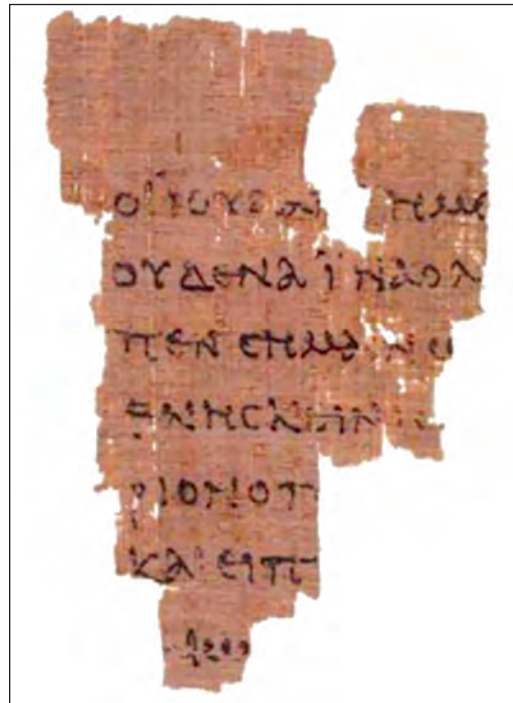 ΟΙ ΙΟΥΔΑΙ ΗΜΙ
ΟΥΔΕΝΑ ΪΝΑ Ο Λ
ΠΕΝ ΣΗΜΑΙΝΩ
ΘΝΗΣΚΕΙΝ
ΡΙΟΝ Ο Π
ΚΑΙ ΕΙΠ